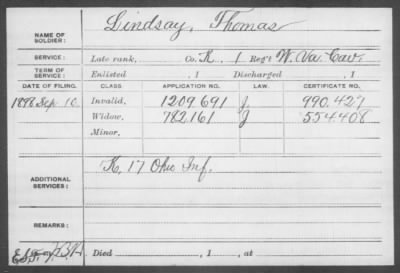 NAME OF SOLDIER: Lindsay, Thomas
SERVICE: Late rank, Co. K, 1 Reg't W. Va. Cav.
TERM OF SERVICE: Enlisted , 1 Discharged , 1
DATE OF FILING. CLASS. APPLICATION NO. LAW. CERTIFICATE NO.
1898 Sep. 10. Invalid, 1209 691 J. 990.427
Widow, 782,161 J 554408
Minor,
ADDITIONAL SERVICES: K, 17 Ohio Inf.
REMARKS:
Died , 1 , at